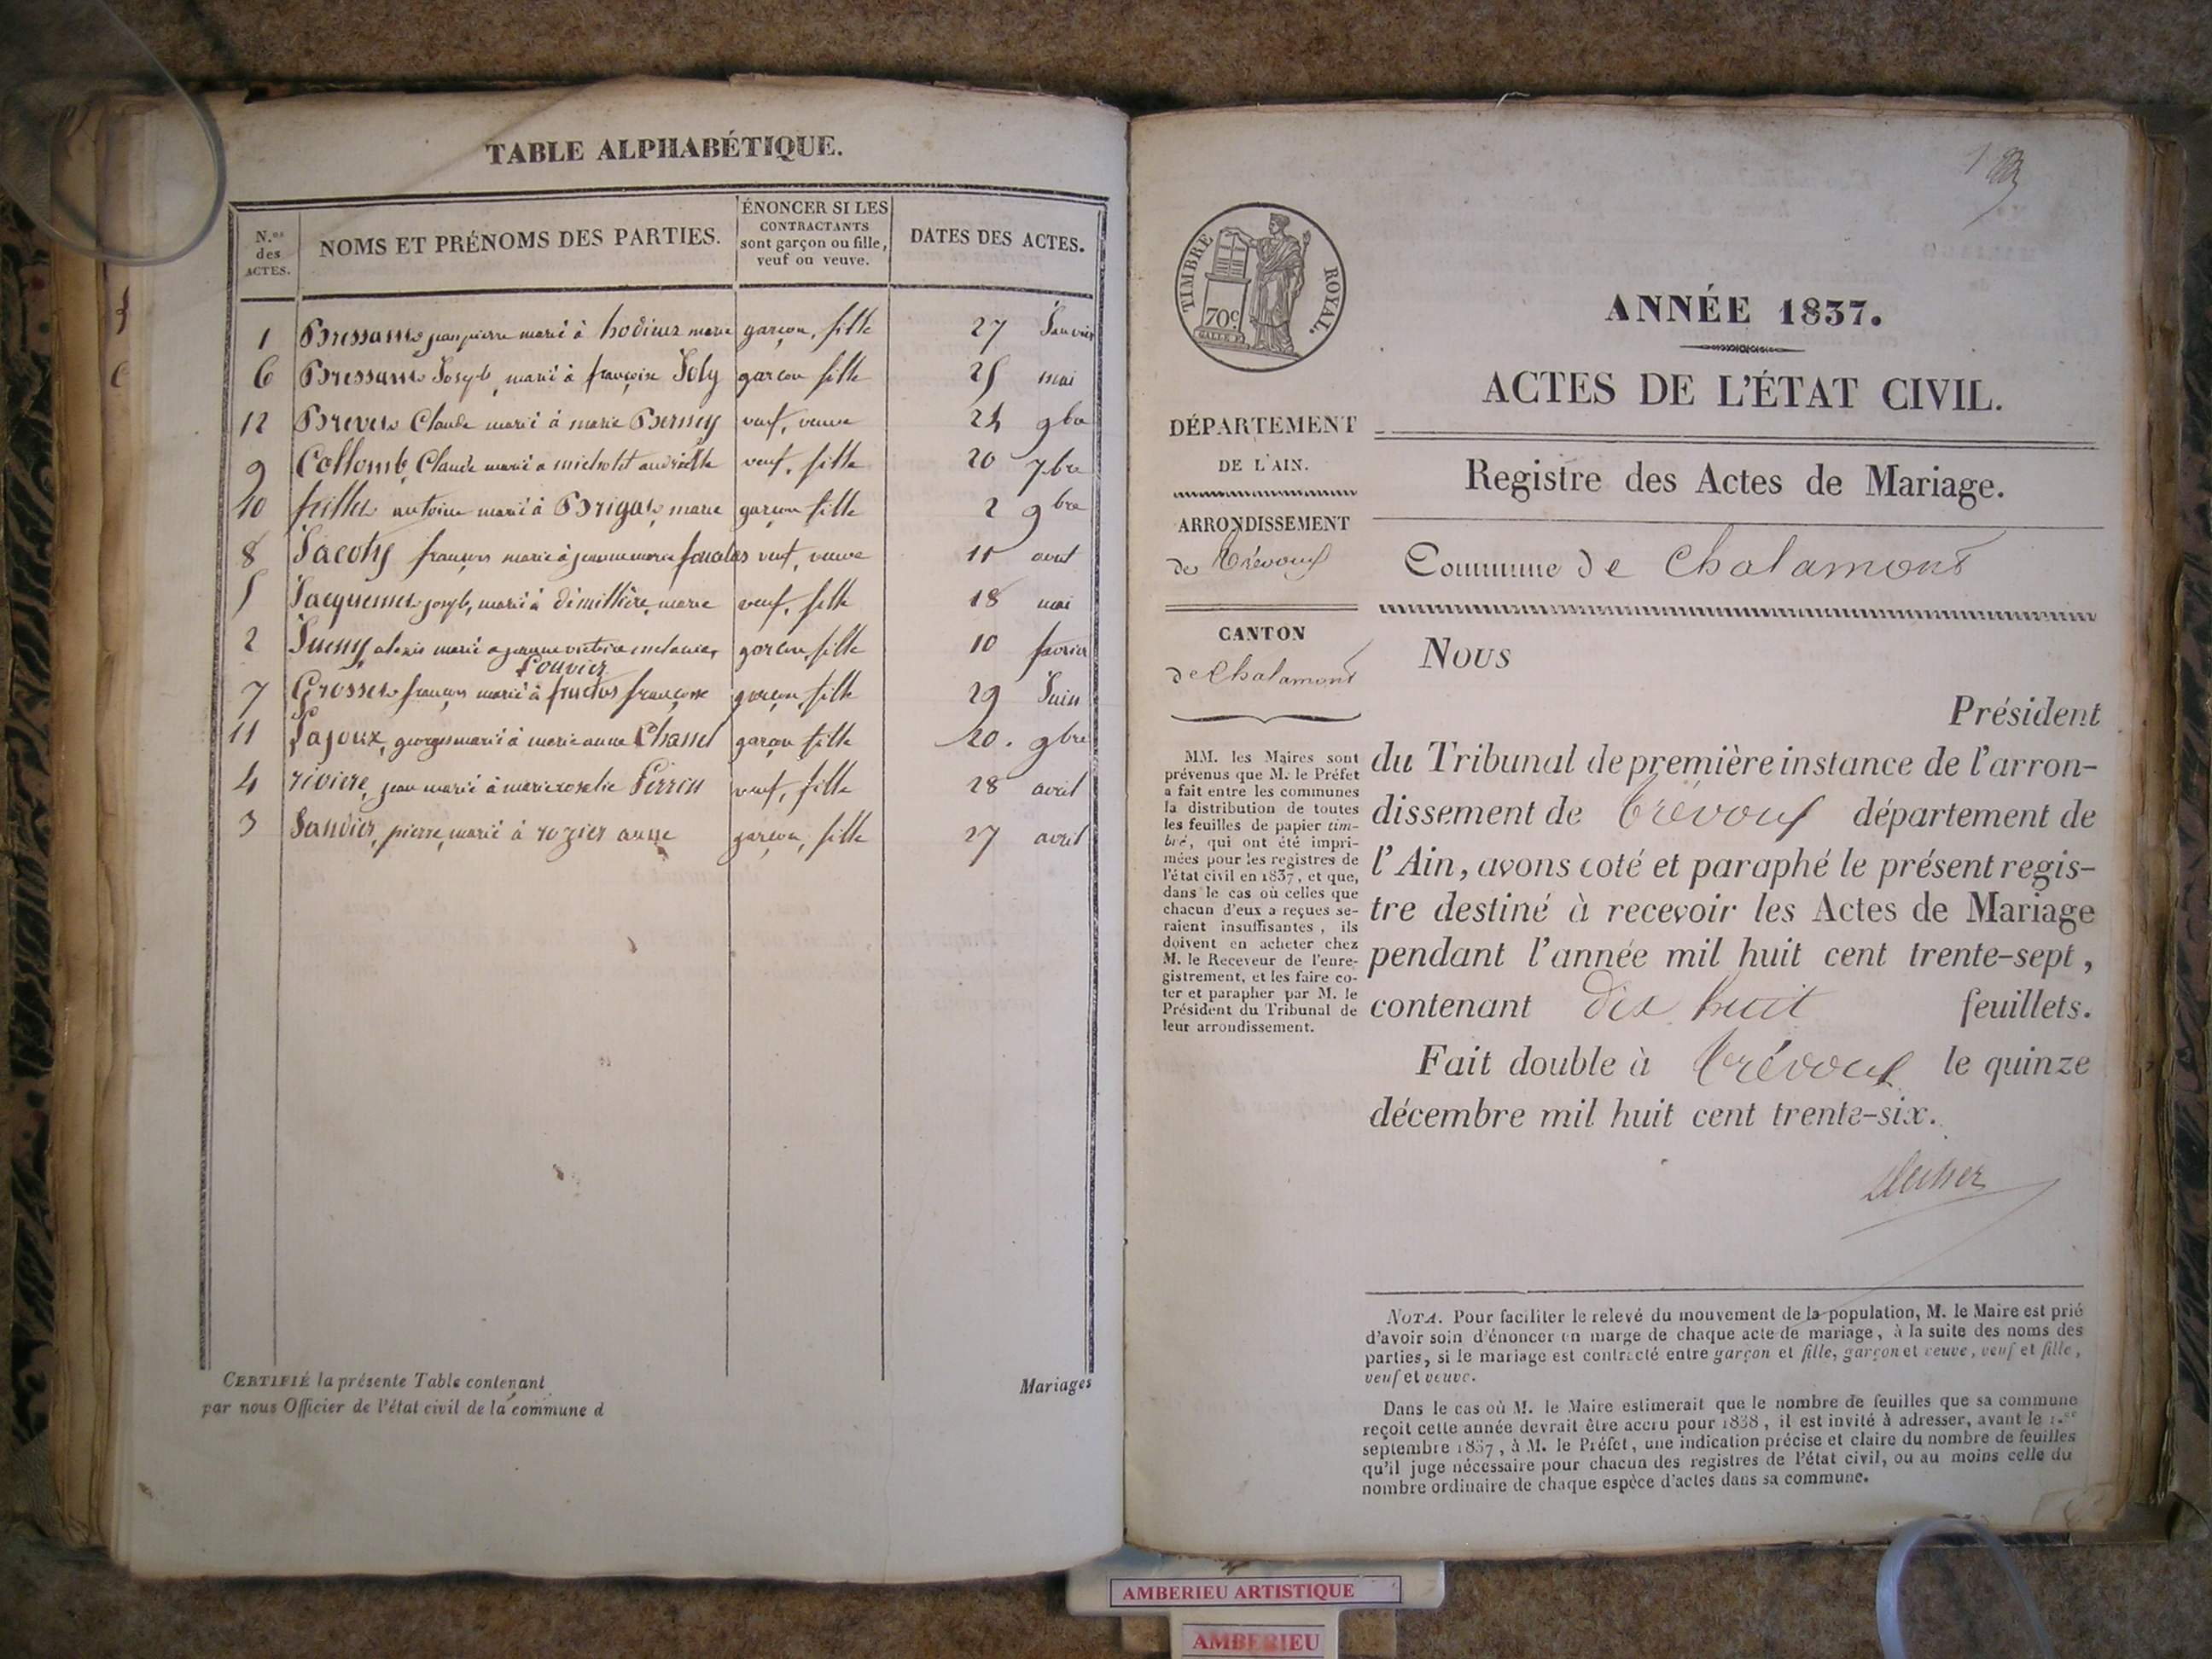 TABLE ALPHABÉTIQUE.
N.os des ACTES.
NOMS ET PRÉNOMS DES PARTIES.
ÉNONCER SI LES
CONTRACTANTS
sont garçon ou fille,
veuf ou veuve.
DATES DES ACTES.
1 jean pierre marié à bodines marie garçon, fille 27 Janvier
6 Joseph marié à françoise Joly garçon fille 25 mai
12 Claude marié à marie Berney veuf, veuve 24 9bre
9 Collomb Claude marié a veuf, fille 20 7bre
10 antoine marié à marie garçon fille 2 9bre
8 Jacoty françois marié à jeanne marie veuf, veuve 11 aout
5 joseph, marié à marie veuf, fille 18 mai
2 alexis marié a jeanne victoire melanie garçon, fille 10 février
Louvier
7 françois marié à françoise garçon, fille 29 Juin
11 Lajoux, georges marié à marie anne Chassel garçon fille 20. 9bre
4 riviere, jean marié à marie roselie Perrin veuf, fille 28 avril
3 pierre, marié à rozier anne garçon, fille 27 avril
CERTIFIÉ la présente Table contenant Mariages
par nous Officier de l'état civil de la commune d
TIMBRE ROYAL.
70c
ANNÉE 1837.
ACTES DE L'ÉTAT CIVIL.
DÉPARTEMENT
DE L'AIN.
Registre des Actes de Mariage.
ARRONDISSEMENT
de Trévoux
Commune de Chalamont
CANTON
de Chalamont
Nous
Président
du Tribunal de première instance de l'arron-
dissement de Trévoux département de
l'Ain, avons coté et paraphé le présent regis-
tre destiné à recevoir les Actes de Mariage
pendant l'année mil huit cent trente-sept,
contenant dix huit feuillets.
Fait double à Trévoux le quinze
décembre mil huit cent trente-six.
MM. les Maires sont
prévenus que M. le Préfet
a fait entre les communes
la distribution de toutes
les feuilles de papier tim-
bré, qui ont été impri-
mées pour les registres de
l'état civil en 1837, et que,
dans le cas où celles que
chacun d'eux a reçues se-
raient insuffisantes, ils
doivent en acheter chez
M. le Receveur de l'enre-
gistrement, et les faire co-
ter et parapher par M. le
Président du Tribunal de
leur arrondissement.
NOTA. Pour faciliter le relevé du mouvement de la population, M. le Maire est prié
d'avoir soin d'énoncer en marge de chaque acte de mariage, à la suite des noms des
parties, si le mariage est contracté entre garçon et fille, garçon et veuve, veuf et fille,
veuf et veuve.
Dans le cas où M. le Maire estimerait que le nombre de feuilles que sa commune
reçoit cette année devrait être accru pour 1838, il est invité à adresser, avant le 1.er
septembre 1837, à M. le Préfet, une indication précise et claire du nombre de feuilles
qu'il juge nécessaire pour chacun des registres de l'état civil, ou au moins celle du
nombre ordinaire de chaque espèce d'actes dans sa commune.
AMBERIEU ARTISTIQUE
AMBERIEU